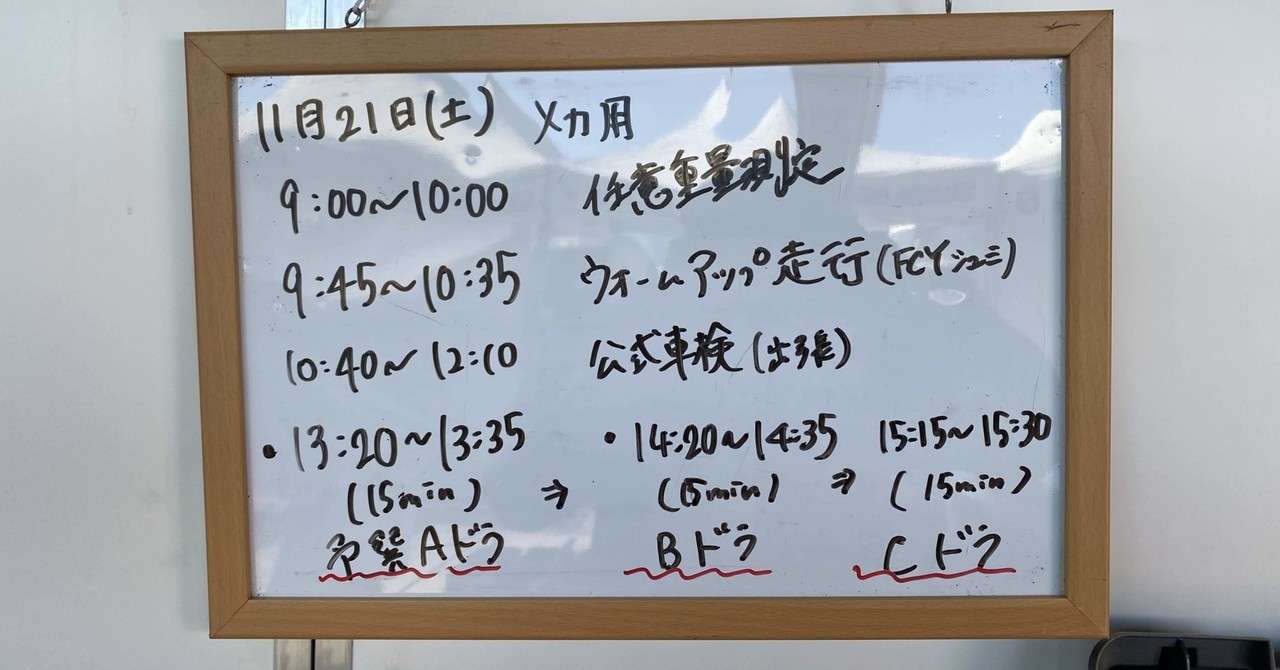 11月21日(土) メカ用
9:00~10:00 任意重量測定
9:45~10:35 ウォームアップ走行(FCYシュミ)
10:40~12:10 公式車検(出張)
・13:20~13:35 ・14:20~14:35 15:15~15:30
(15min) ⇒ (15min) ⇒ (15min)
予選Aドラ Bドラ Cドラ